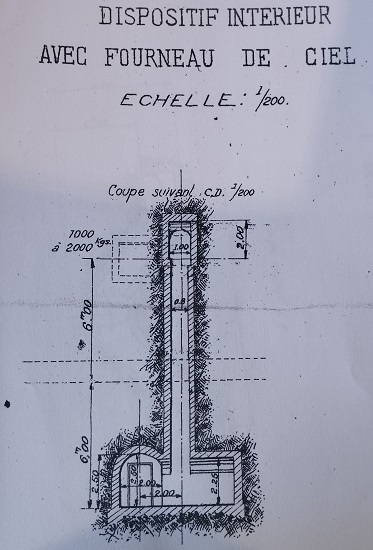 DISPOSITIF INTERIEUR
AVEC FOURNEAU DE CIEL
ECHELLE: 1/200.
Coupe suivant C.D. 1/200
1000
à 2000 Kgs.
1.00
2.00
6.m00
0.8
6.m00
2.50
2.00
2.00
2.25